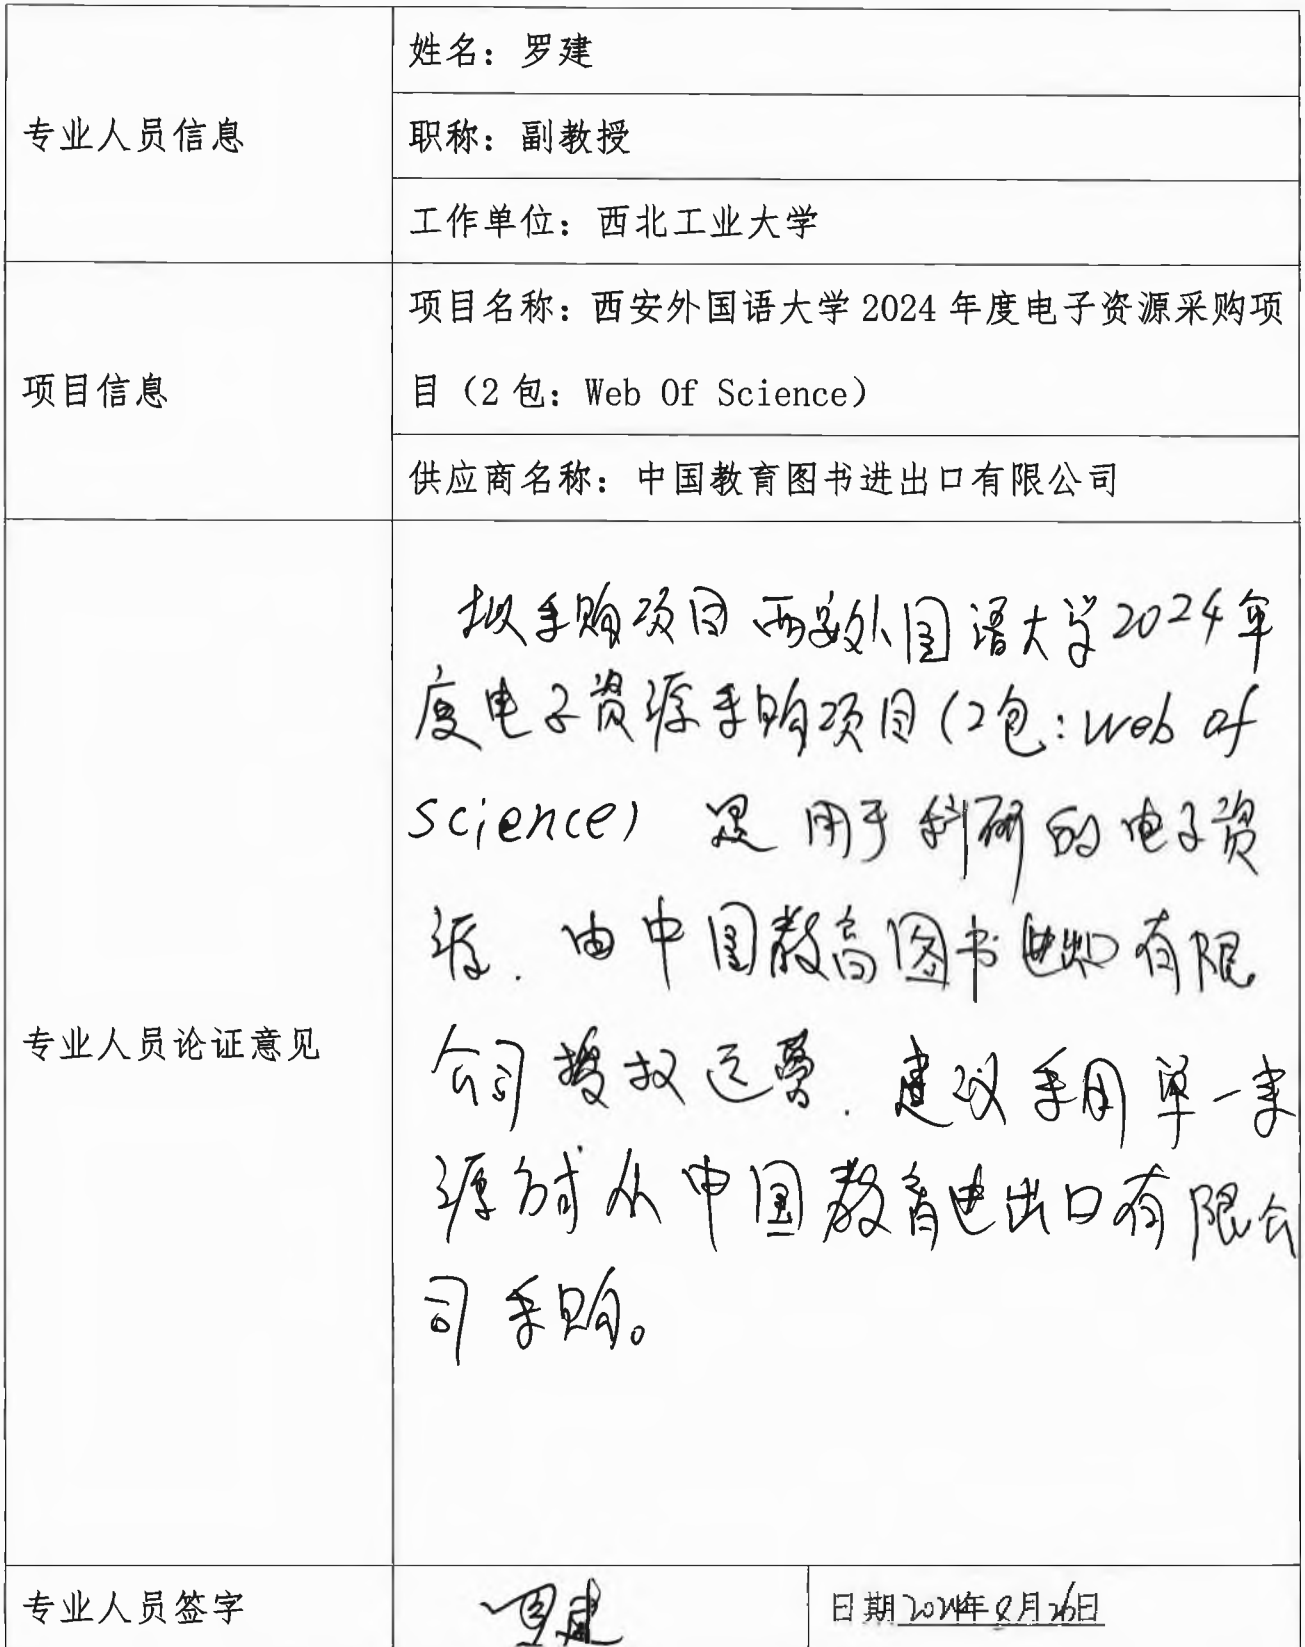 姓名：罗建
专业人员信息
职称：副教授
工作单位：西北工业大学
项目名称：西安外国语大学 2024 年度电子资源采购项
项目信息
目（2 包：Web Of Science）
供应商名称：中国教育图书进出口有限公司
拟采购项目西安外国语大学2024年
度电子资源采购项目(2包：Web of
Science) 是用于科研的电子资
源. 由中国教育图书进出口有限
专业人员论证意见
公司授权运营. 建议采用单一来
源方式从中国教育进出口有限公
司采购。
专业人员签字
罗建
日期 2024年8月26日